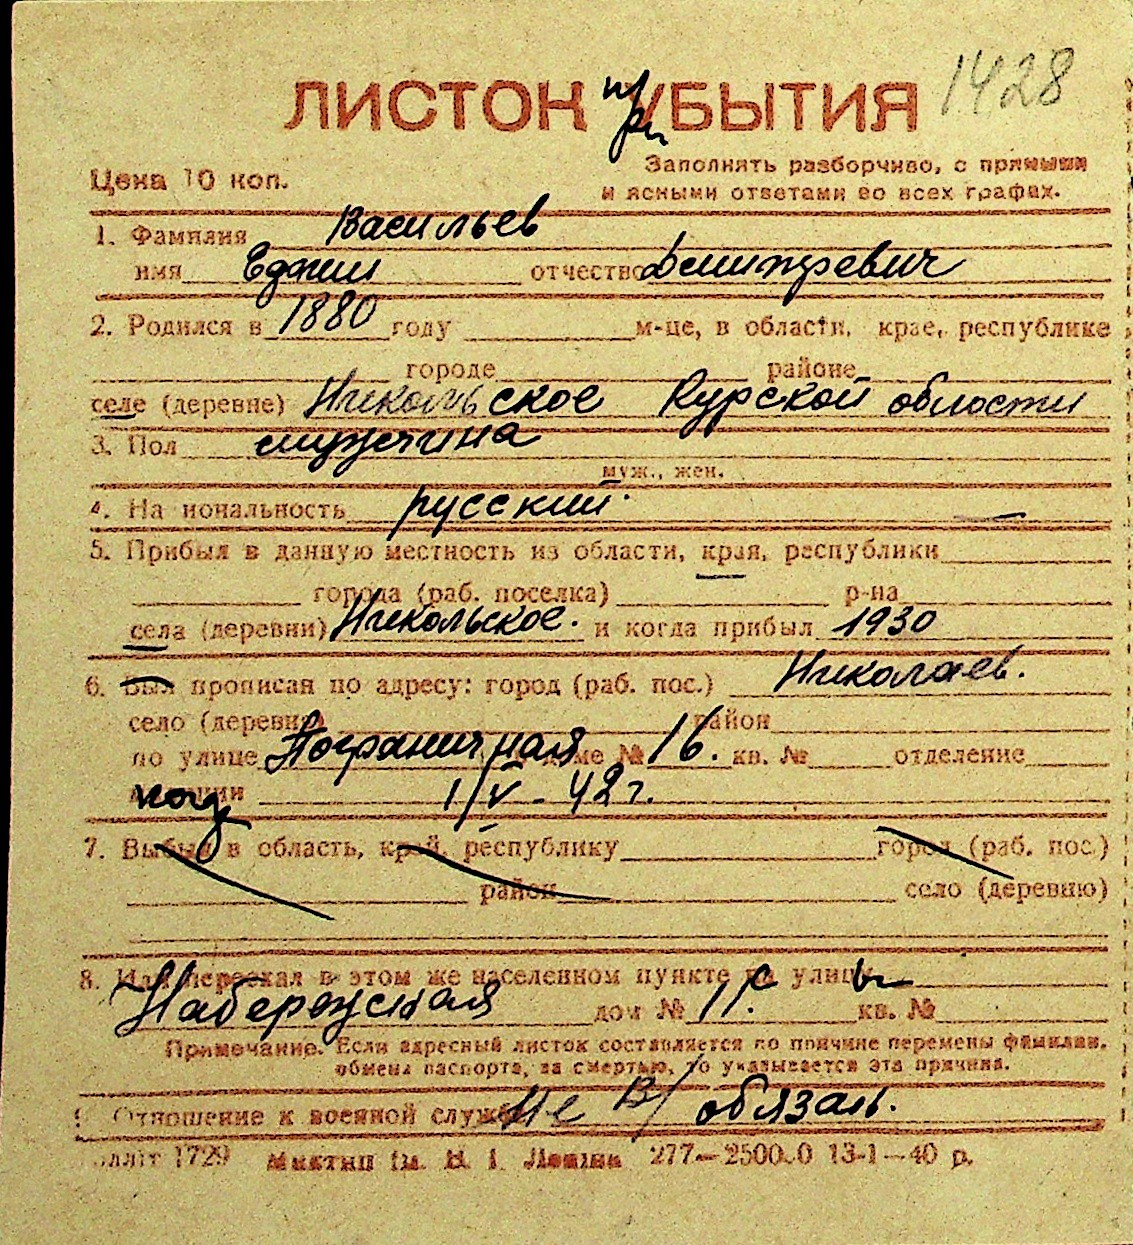 1428
ЛИСТОК при УБЫТИЯ
Цена 10 коп.
Заполнять разборчиво, с прямыми
и ясными ответами во всех графах.
1. Фамилия Васильев
имя отчество Дмитревич
2. Родился в 1880 году м-це, в области, крае, республике
городе районе
селе (деревне) Никольское Курской области
3. Пол мужчина
муж., жен.
4. На иональность русский.
5. Прибыл в данную местность из области, края, республики
города (раб. поселка) р-на
села (деревни) Никольское. и когда прибыл 1930
6. Был прописан по адресу: город (раб. пос.) Николаев.
село (деревня) район
по улице Пограничная доме № 16. кв. № отделение
милиции 1/V-42 г.
7. Выбыл в область, край, республику город (раб. пос.)
район село (деревню)
8. Или переехал в этом же населенном пункте на улицу
Набережная дом № 11. кв. №
Примечание. Если адресный листок составляется по причине перемены фамилии,
обмена паспорта, за смертью, то указывается эта причина.
9. Отношение к военной службе Не в/обязан.
1729 277—2500.0 13-1—40 р.